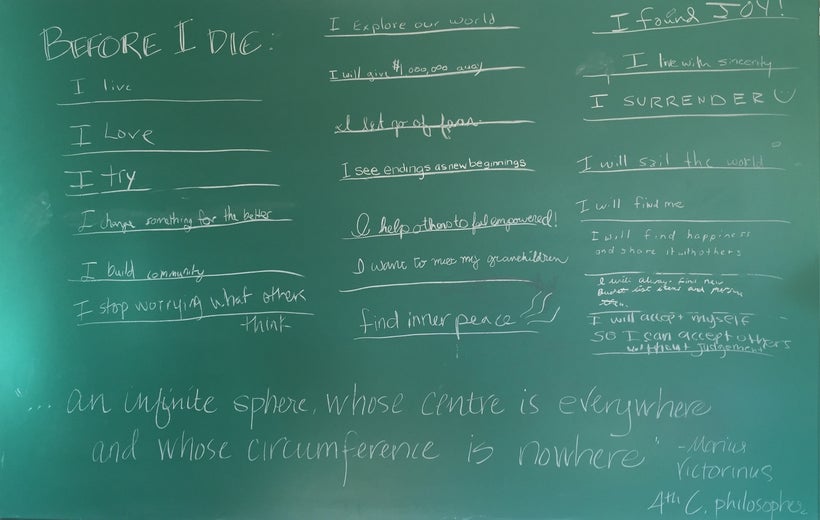 BEFORE I DIE:
I live
I Love
I try
I change something for the better
I build community
I stop worrying what others
think
I Explore our world
I will give $1,000,000 away
I let go of fear.
I see endings as new beginnings
I help others to feel empowered!
I want to meet my grandchildren
find inner peace
I found JOY!
I live with sincerity
I SURRENDER
I will sail the world
I will find me
I will find happiness
and share it with others
I will always find new
Bucket list ideas and pursue
them.
I will accept myself
So I can accept others
without judgement
"... an infinite sphere, whose centre is everywhere
and whose circumference is nowhere" -Marius
Victorinus
4th C. philosopher